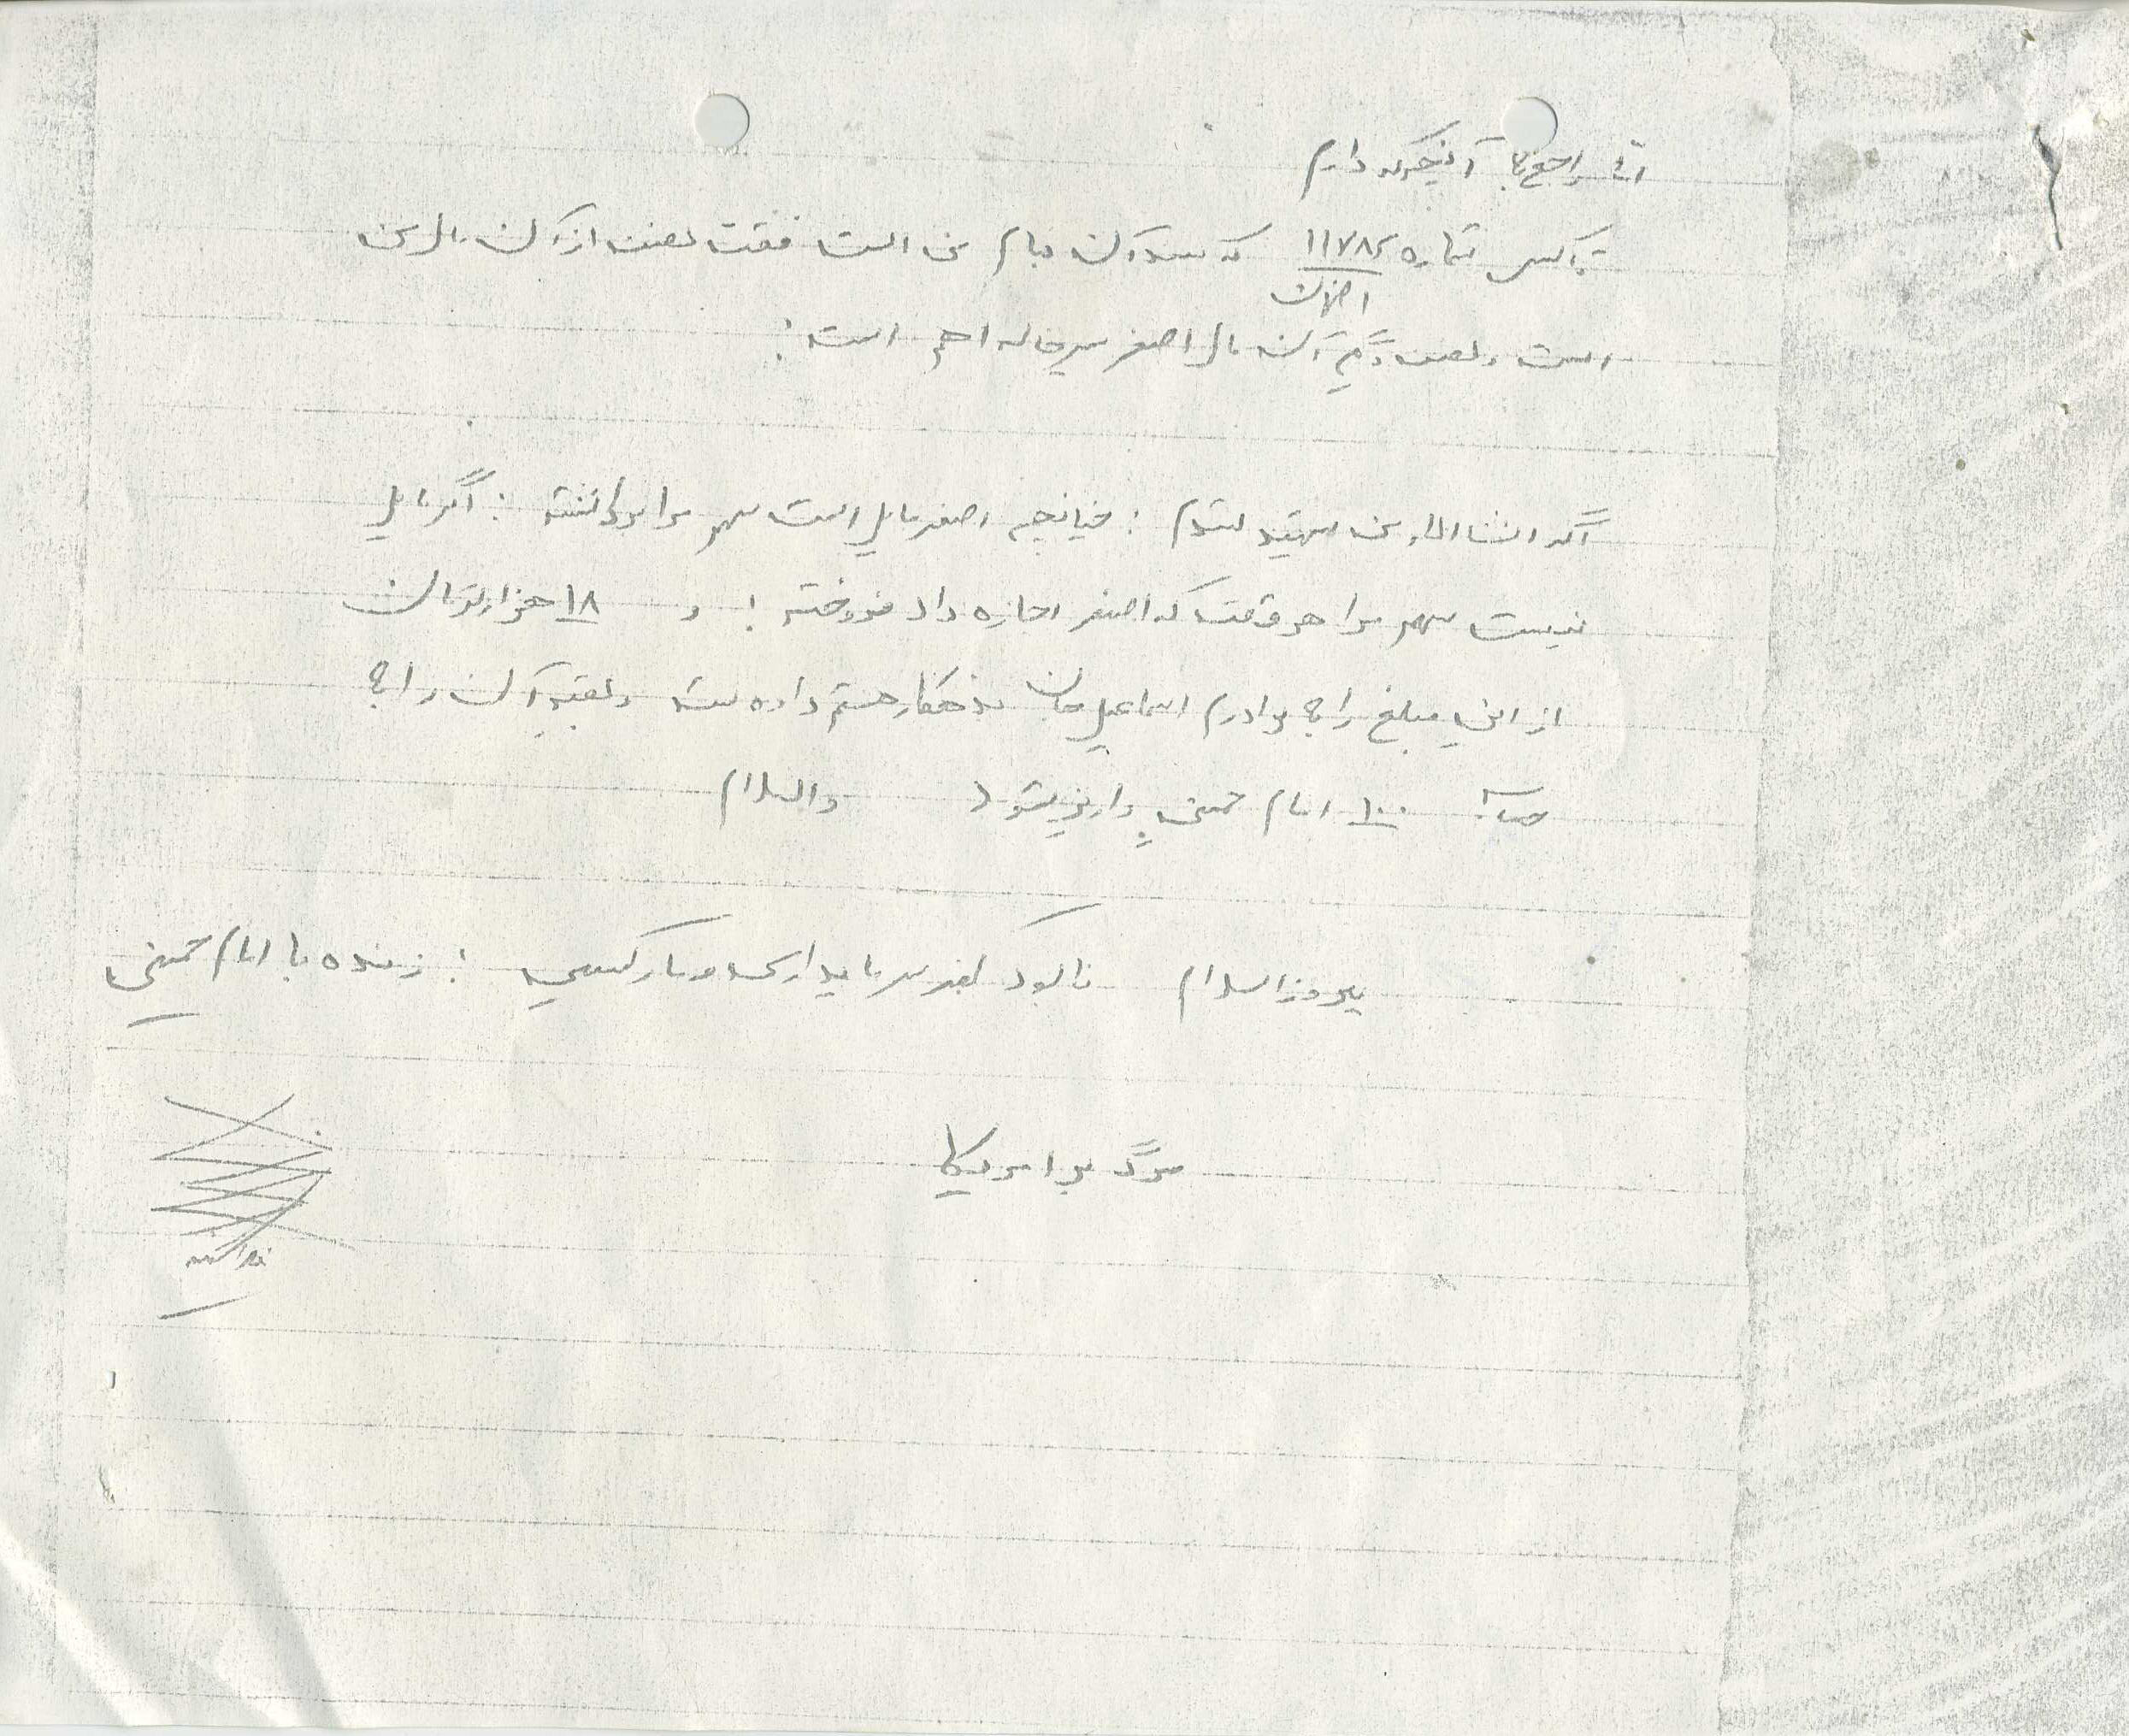 اما راجع به آنچه که دارم
تاکسی شماره ۱۱۷۸۲ که سند آن بنام من است فقط نصف از آن مال من
اصفهان
است و نصف دیگر آن مال اصغر پسرخاله احمد است :
اگر انشاالله من شهید شدم : چنانچه اصغر مایل است سهم مرا برداشته : اگر مایل
نیست سهم مرا هر وقت که اصغر اجازه داد فروخته : و ۱۸ هزار تومان
از این مبلغ را به برادرم اسماعیل جان بدهکار هستم داده شده و بقیه آن را به
حساب ۱۰۰ امام خمینی واریز شود والسلام
پیروز اسلام نابود کفر سرمایداری و مارکسیسی : زنده با امام خمینی
مرگ بر امریکا